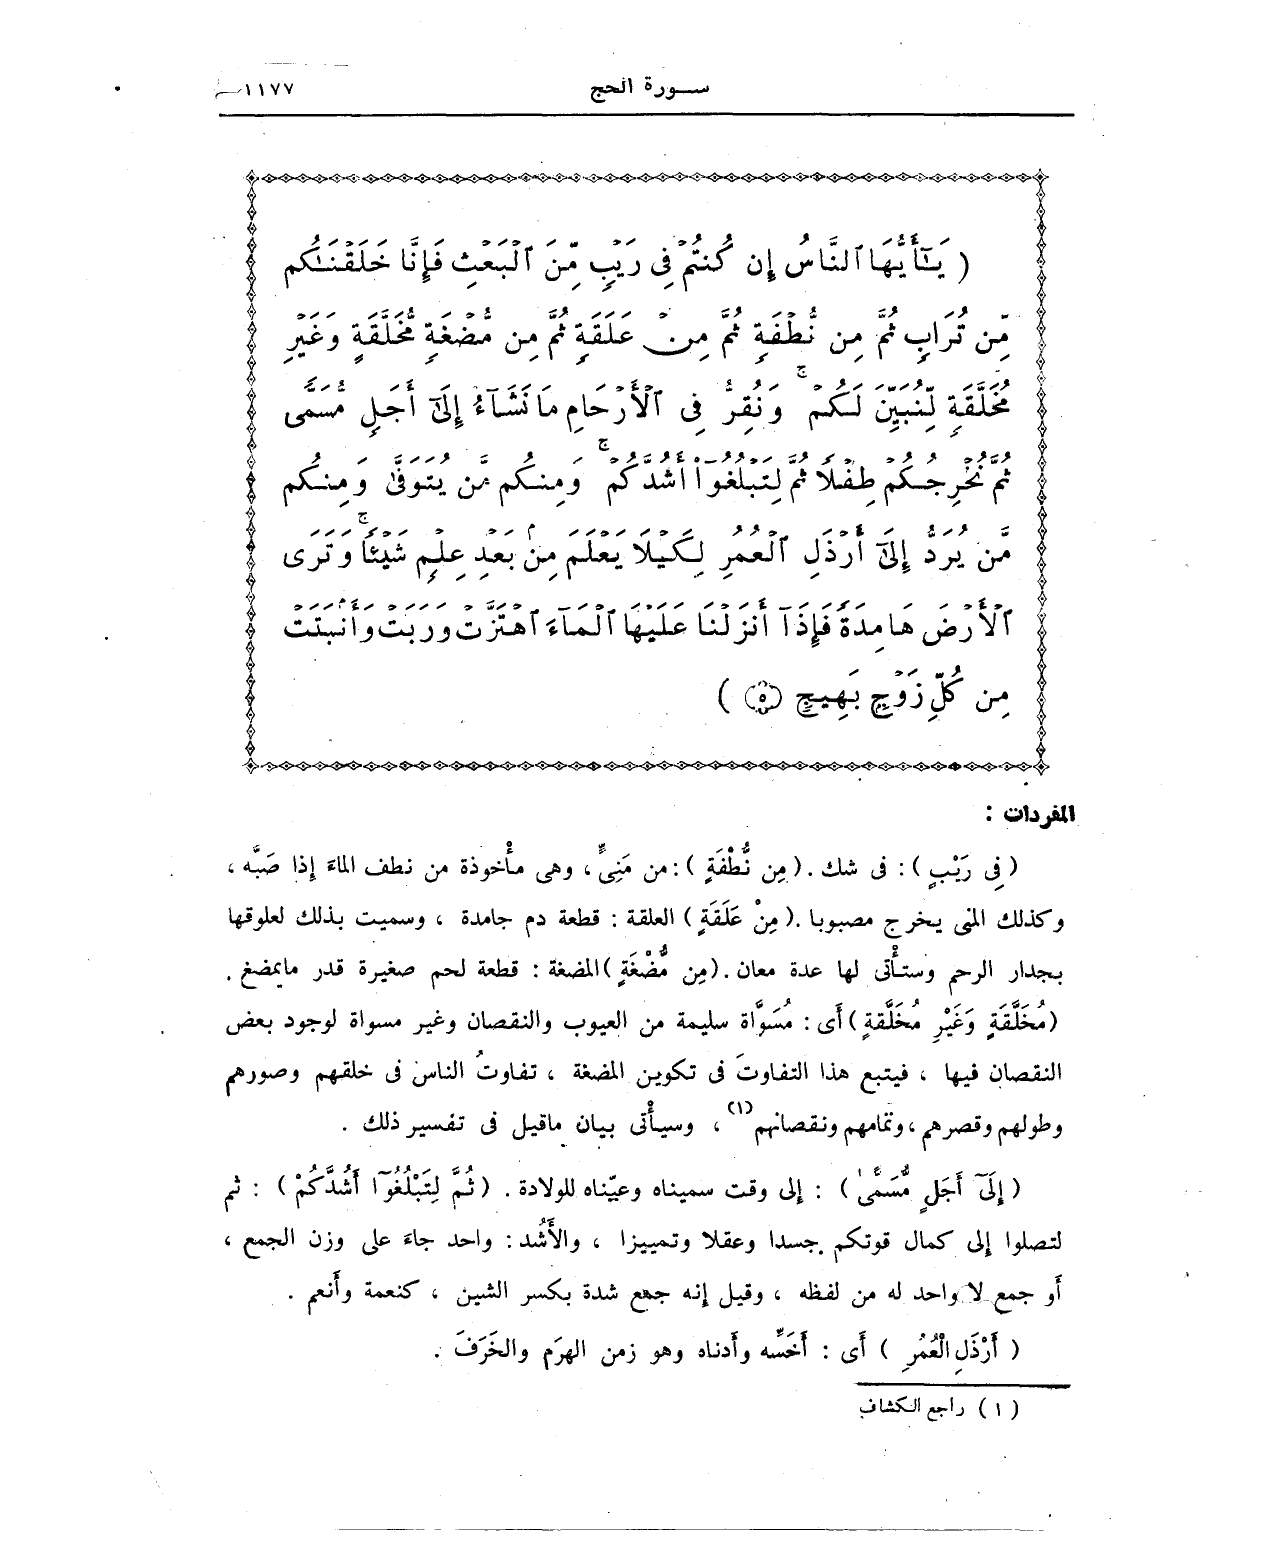 سورة الحج
١١٧٧
( يَٰٓأَيُّهَا ٱلنَّاسُ إِن كُنتُمْ فِى رَيْبٍ مِّنَ ٱلْبَعْثِ فَإِنَّا خَلَقْنَٰكُم
مِّن تُرَابٍ ثُمَّ مِن نُّطْفَةٍ ثُمَّ مِنْ عَلَقَةٍ ثُمَّ مِن مُّضْغَةٍ مُّخَلَّقَةٍ وَغَيْرِ
مُخَلَّقَةٍ لِّنُبَيِّنَ لَكُمْ ۚ وَنُقِرُّ فِى ٱلْأَرْحَامِ مَا نَشَآءُ إِلَىٰٓ أَجَلٍ مُّسَمًّى
ثُمَّ نُخْرِجُكُمْ طِفْلًا ثُمَّ لِتَبْلُغُوٓا۟ أَشُدَّكُمْ ۚ وَمِنكُم مَّن يُتَوَفَّىٰ وَمِنكُم
مَّن يُرَدُّ إِلَىٰٓ أَرْذَلِ ٱلْعُمُرِ لِكَيْلَا يَعْلَمَ مِنۢ بَعْدِ عِلْمٍ شَيْـًٔا ۚ وَتَرَى
ٱلْأَرْضَ هَامِدَةً فَإِذَآ أَنزَلْنَا عَلَيْهَا ٱلْمَآءَ ٱهْتَزَّتْ وَرَبَتْ وَأَنۢبَتَتْ
مِن كُلِّ زَوْجٍۭ بَهِيجٍ ۝٥ )
المفردات :
( فِى رَيْبٍ ) : فى شك . ( مِن نُّطْفَةٍ ) : من مَنِىٍّ ، وهى مأْخوذة من نطف الماءَ إذا صَبَّه ،
وكذلك المنى يخرج مصبوبا . ( مِنْ عَلَقَةٍ ) العلقة : قطعة دم جامدة ، وسميت بذلك لعلوقها
بجدار الرحم وستأْتى لها عدة معان . ( مِن مُّضْغَةٍ ) المضغة : قطعة لحم صغيرة قدر مايمضغ .
( مُخَلَّقَةٍ وَغَيْرِ مُخَلَّقةٍ ) أَى : مُسَوَّاة سليمة من العيوب والنقصان وغير مسواة لوجود بعض
النقصان فيها ، فيتبع هذا التفاوتَ فى تكوين المضغة ، تفاوتُ الناس فى خلقهم وصورهم
وطولهم وقصرهم ، وتمامهم ونقصانهم (١) ، وسيأْتى بيان ماقيل فى تفسير ذلك .
( إِلَىٰٓ أَجَلٍ مُّسَمًّى ) : إلى وقت سميناه وعيّناه للولادة . ( ثُمَّ لِتَبْلُغُوٓا أَشُدَّكُمْ ) : ثم
لتصلوا إلى كمال قوتكم جسدا وعقلا وتمييزا ، والأَشُد : واحد جاءَ على وزن الجمع ،
أَو جمع لا واحد له من لفظه ، وقيل إنه جمع شدة بكسر الشين ، كنعمة وأَنعم .
( أَرْذَلِ الْعُمُرِ ) أَى : أَخَسِّه وأَدناه وهو زمن الهرَم والخَرَفَ .
( ١ ) راجع الكشاف